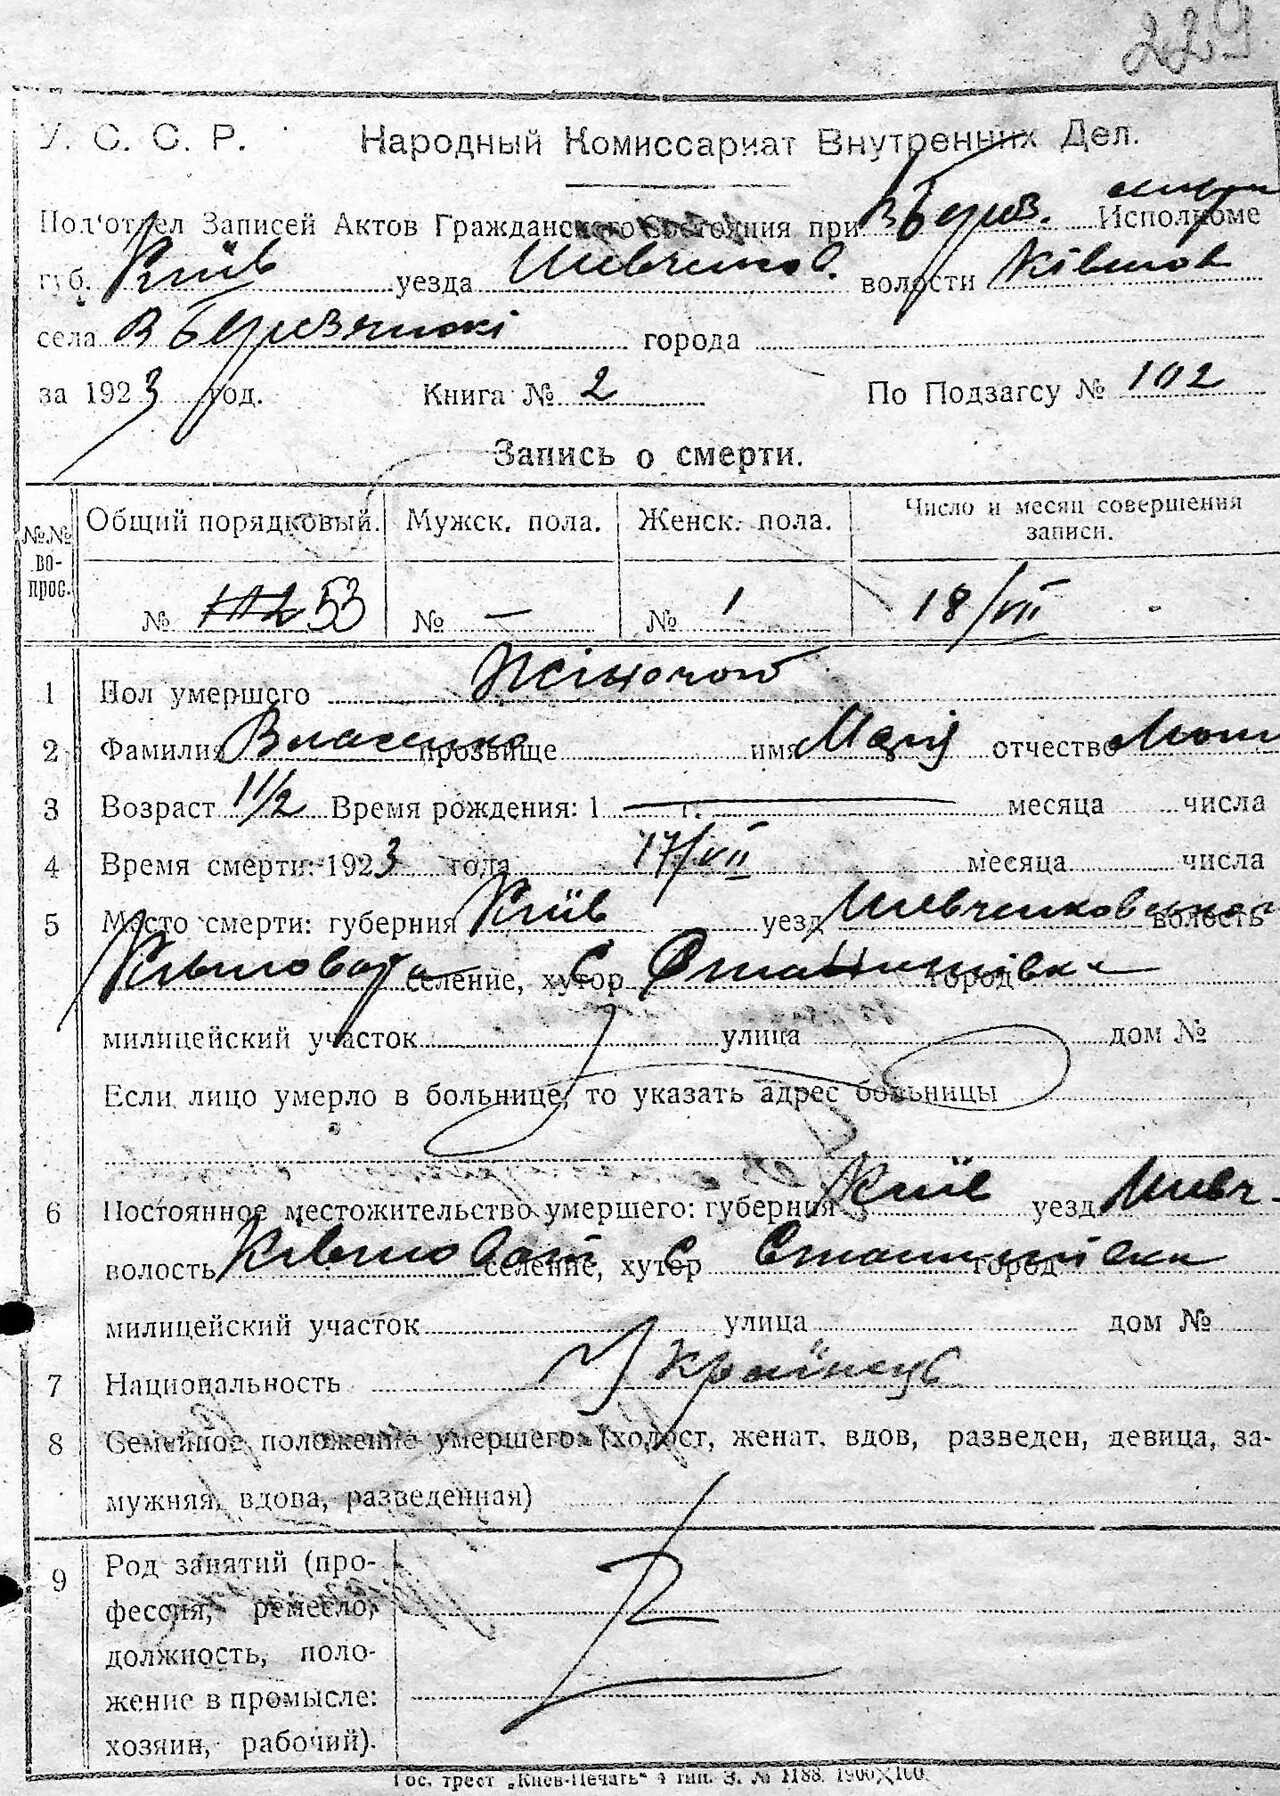 229
У. С. С. Р. Народный Комиссариат Внутренних Дел.
Под'отдел Записей Актов Гражданского Состояния при В Берез. Исполкоме
губ. Київ уезда Шевченков. волости Ківшов
села В Березянкі города
за 1923 год. Книга № 2 По Подзагсу № 102
Запись о смерти.
№№ во-прос. Общий порядковый. Мужск. пола. Женск. пола. Число и месяц совершения записи.
№ 102 53 № — № 1 18/VII
1 Пол умершего Жіночой
2 Фамилия Власенко прозвище имя Марія отчество
3 Возраст 1 1/2 Время рождения: 1 г. месяца числа
4 Время смерти: 1923 года 17/VII месяца числа
5 Место смерти: губерния Київ уезд Шевченковский волость
селение, хутор С Станишівка город
милицейский участок улица дом №
Если лицо умерло в больнице, то указать адрес больницы
6 Постоянное местожительство умершего: губерния Київ уезд Шевч-
волость селение, хутор С Станишівка город
милицейский участок улица дом №
7 Национальность Українець
8 Семейное положение умершего: (холост, женат, вдов, разведен, девица, за-
мужняя, вдова, разведенная)
9 Род занятий (про-
фессия, ремесло,
должность, поло-
жение в промысле:
хозяин, рабочий).
Гос. трест „Киев-Печать" 4 тип. З. № 1188. 1900×100.